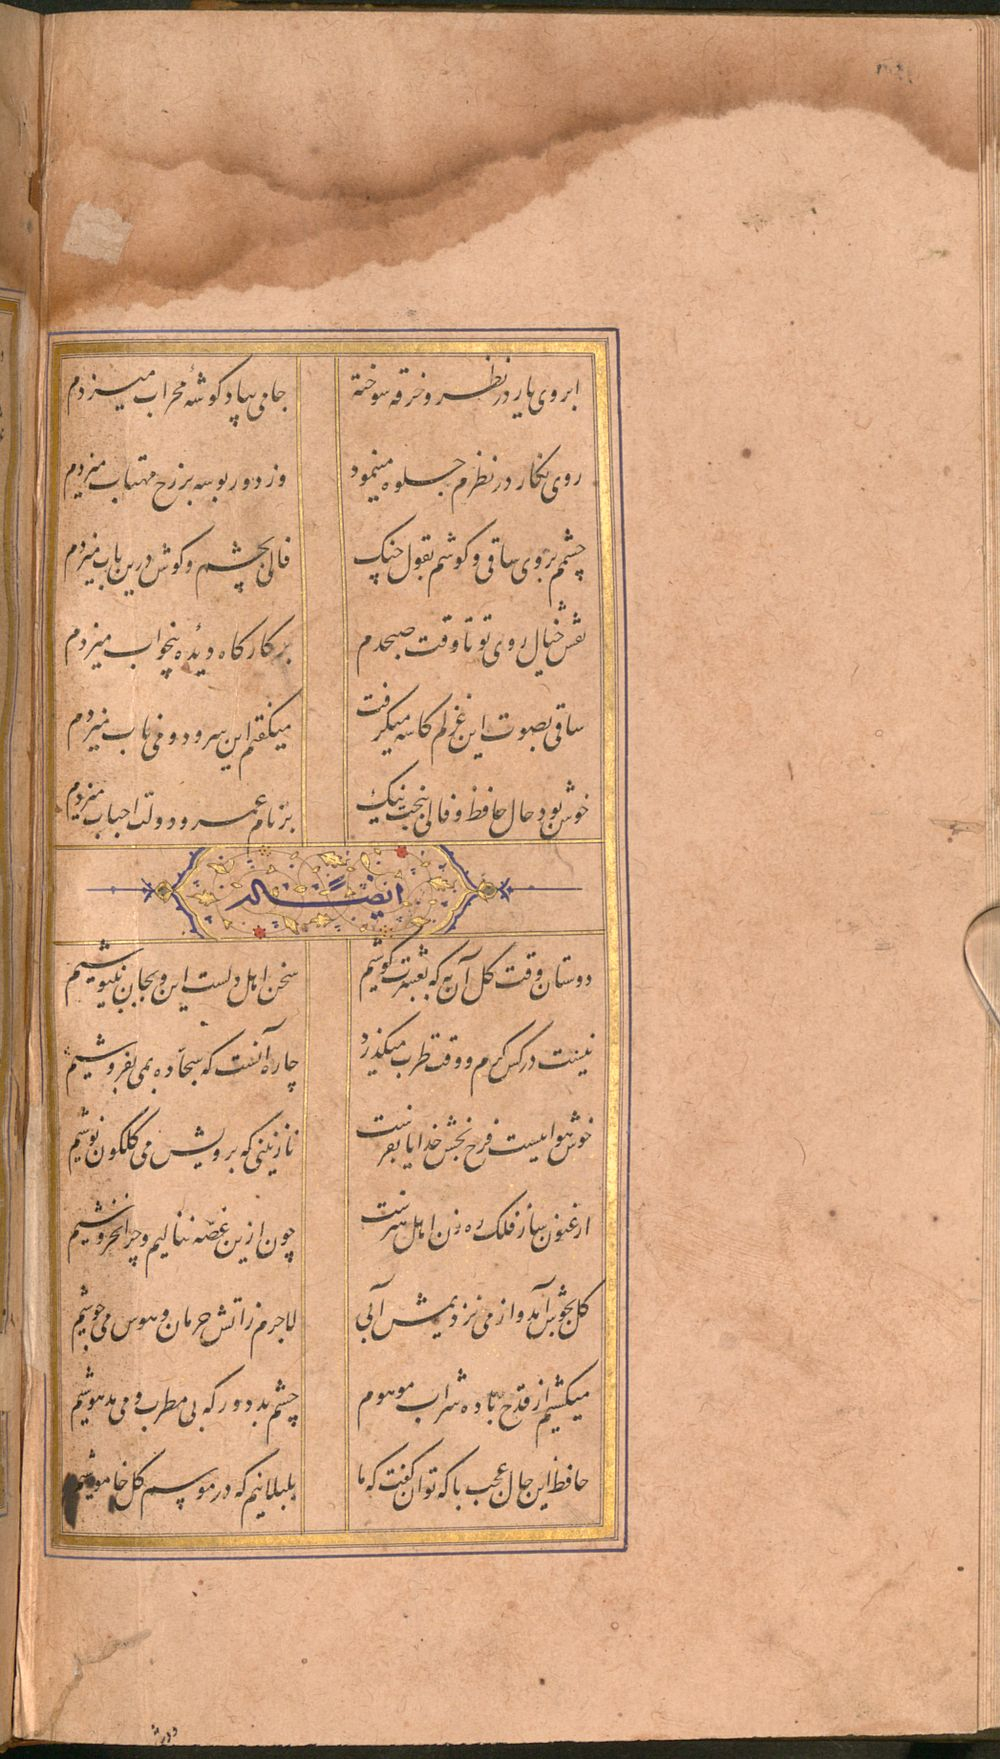 ابروی یار در نظر و خرقه سوخته جامی بیاد گوشهٔ محراب میزدم
روی نگار در نظرم جلوه مینمود وز دور بوسه بر رخ مهتاب میزدم
چشمم بروی ساقی و گوشم بقول چنگ فالی بچشم و گوش درین باب میزدم
نقش خیال روی تو تا وقت صبحدم بر کارگاه دیدهٔ بیخواب میزدم
ساقی بصوت این غزلم کاسه میگرفت میگفتم این سرود و می ناب میزدم
خوش بود حال حافظ و فالی ببخت نیک بر نام عمر و دولت احباب میزدم
ایضاً له
دوستان وقت گل آن به که بعشرت کوشیم سخن اهل دلست این و بجان بنیوشیم
نیست در کس کرم و وقت طرب میگذرد چاره آنست که سجّاده بمی بفروشیم
خوش هواییست فرح بخش خدایا بفرست نازنینی که برویش می گلگون نوشیم
ارغنون ساز فلک ره زن اهل هنرست چون ازین غصّه ننالیم و چرا نخروشیم
گل بجوش آمد و از می نزدیمش آبی لاجرم زآتش حرمان و هوس می جوشیم
میکشیم از قدح باده شراب موهوم چشم بد دور که بی مطرب و می مدهوشیم
حافظ این حال عجب با که توان گفت که ما بلبلانیم که در موسم گل خاموشیم